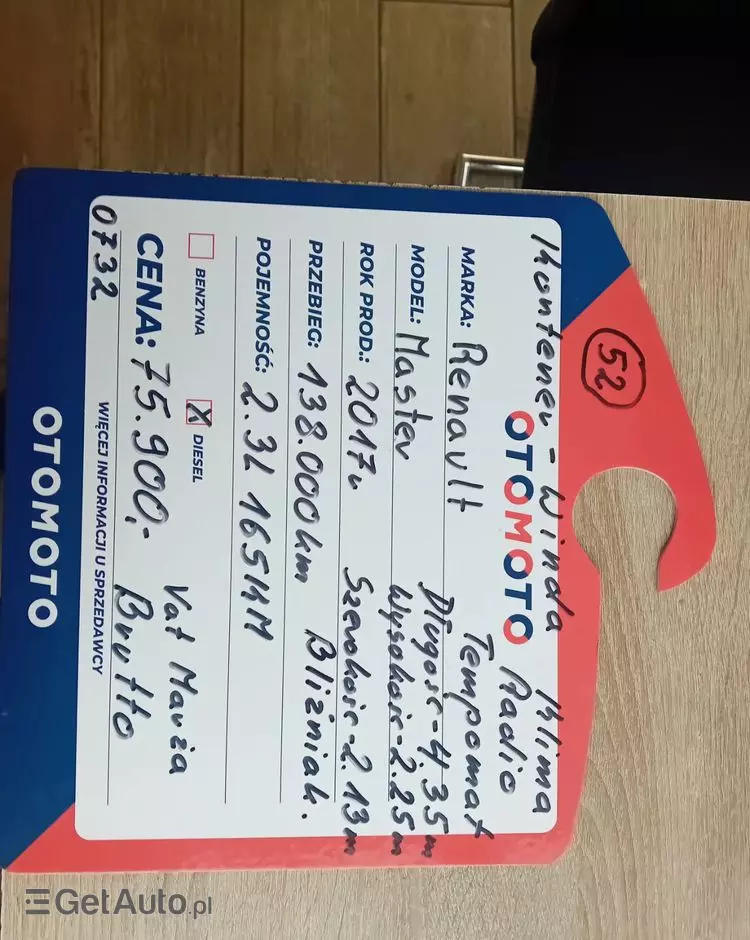 52
Kontener - Winda Klima
OTOMOTO Radio
MARKA: Renault Tempomat
Długość - 4,35m
MODEL: Master Wysokość - 2.25m
ROK PROD.: 2017r Szerokość - 2.13m
PRZEBIEG: 138.000km Bliźniak.
POJEMNOŚĆ: 2.3L 165KM
BENZYNA X DIESEL Vat Marża
CENA: 75.900,- Brutto
0732 WIĘCEJ INFORMACJI U SPRZEDAWCY
OTOMOTO
GetAuto.pl